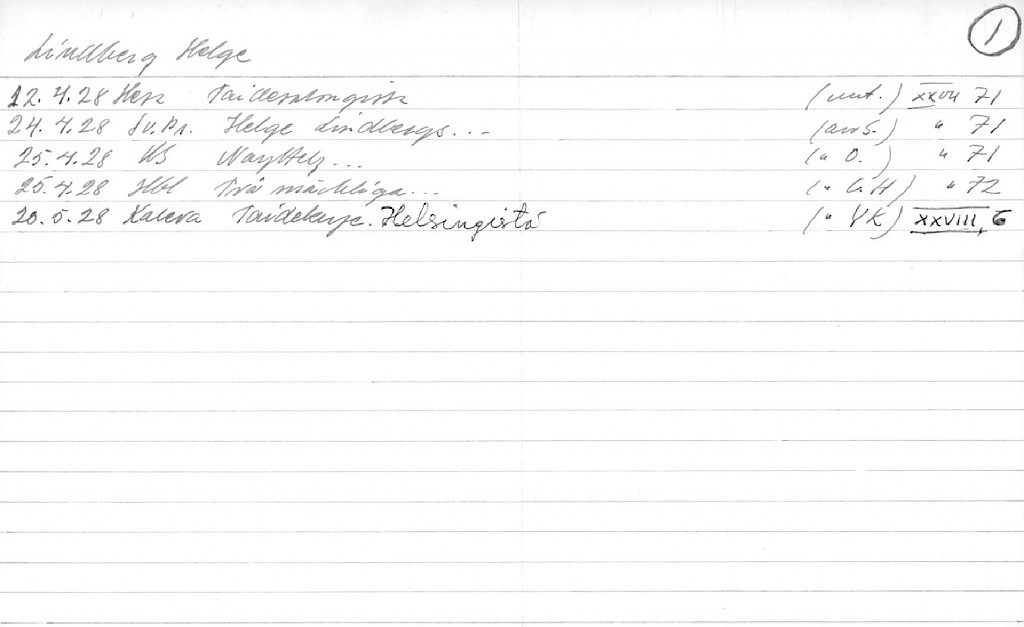 1
Lindberg Helge
12.4.28 Taidesalongissa (uut.) XXVII 71
24.4.28 Sv.Pr. Helge Lindbergs... (arv S.) " 71
25.4.28 US Näyttely... (" O.) " 71
25.4.28 Hbl Två märkliga... (" G.H) " 72
20.5.28 Kaleva Taidekirje. Helsingistä (" YK) XXVIII, 6